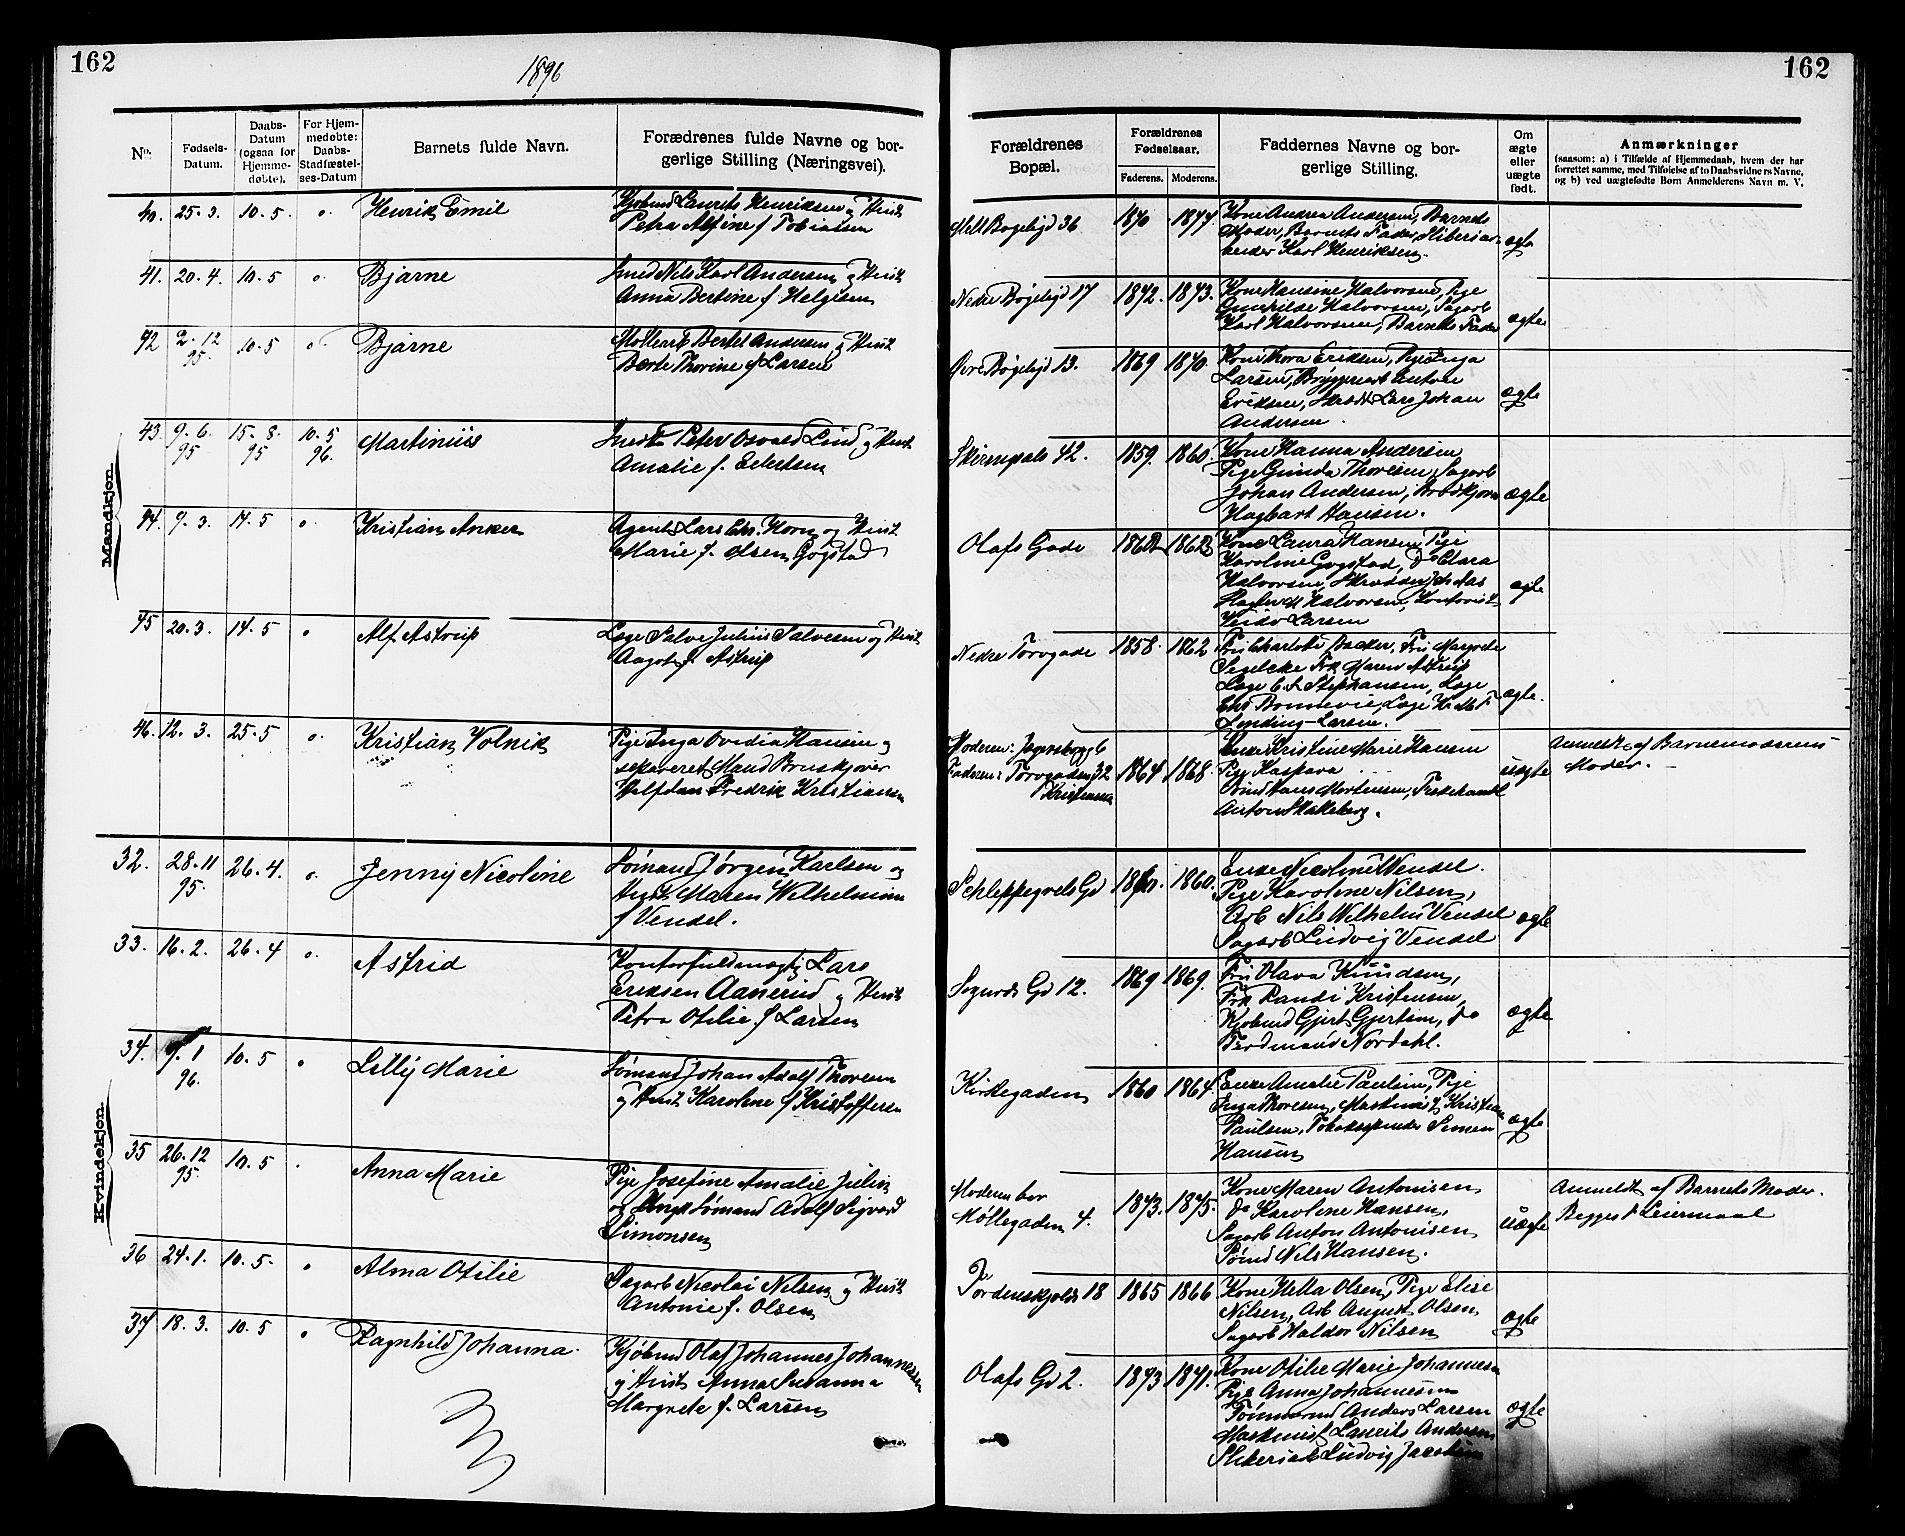 162
1896
No.
Fødsels-
Datum.
Daabs-
Datum
(ogsaa for
Hjemme-
døbte).
For Hjem-
medøbte:
Daabs-
Stadfæstel-
ses-Datum
Barnets fulde Navn.
Forædrenes fulde Navne og bor-
gerlige Stilling (Næringsvei).
Mandkjøn.
40. 25. 3. 10. 5 Henrik Emil
Laurits Henriksen og Hust
Petra Alfine f Tobiasen
41. 20. 4. 10. 5 Bjarne
Smed Nils Karl Andersen og Hust
Anna Bertine f Helgesen
42 2. 12 95. 10. 5 Bjarne
Bertel Andersen og Hust
Berte Thorine f Larsen
43. 9. 6. 95 15. 8. 95 10. 5 96. Martinius
Peter Osvald Lind og Hust
Amalie f.
44. 9. 3. 14. 5 Kristian Anker
Agent Lars Chr. Horn og Hust
Marie f. Olsen Gogstad
45 20. 3. 14. 5 Alf Astrup
Læge Salve Julius Salvesen og Hust
Aagot f. Astrup
46. 12. 3. 25. 5 Kristian Volnik
Pige Inga Ovedia Hansen og
separeret Mand
Halfdan Fredrik Kristiansen
Kvindekjøn.
32. 28. 11 95. 26. 4. Jenny Nicoline
Sømand Jørgen Karlsen og
Hust Maren Wilhelmine
f Vendel.
33. 16. 2. 26. 4 Astrid
Kontorfuldmægtig Lars
Eriksen Aanerud og Hust
Petra Otilie f Larsen
34. 9. 1 96. 10. 5 Lilly Marie
Sømand Johan Adolf Thoresen
og Hust Karoline f Kristoffersen
35 26. 12 95. 10. 5 Anna Marie
Pige Josefine Amalie Julin
og Ungk Sømand Adolf Sigvard
Simonsen
36 24. 1. 10. 5. Alma Otilie
Sagarb Nicolai Nilsen og Hust
Antonie f. Olsen
37 18. 3. 10. 5 Ragnhild Johanna.
Kjøbmd Olaf Johannes Johannessen
og Hust Anna Susanna
Margrete f. Larsen
162
Forældrenes
Bopæl.
Forældrenes
Fødselsaar.
Faderens. Moderens.
Faddernes Navne og bor-
gerlige Stilling.
Om
ægte
eller
uægte
født.
Anmærkninger
(saasom: a) i Tilfælde af Hjemmedaab, hvem der har
forrettet samme, med Tilføielse af to Daabsvidners Navne,
og b) ved uægtefødte Børn Anmelderens Navn m. V.
Bøgelyd 36 1870 1877.
Kone Andrea Andersen, Barnets
Moder, Barnets Fader,
Karl Henriksen.
ægte
Nedre Bøgelyd 17 1872. 1873.
Kone Hansine Halvorsen, Pige
Gunhilde Halvorsen, Sagarb
Karl Halvorsen, Barnets Fader
ægte
Øvre Bøgelyd 13. 1869 1870.
Kone Thora Eriksen, Pige Inga
Larsen, Bryggeriarb
Eriksen, Lars Johan
Andersen.
ægte
42. 1859. 1860.
Kone Hanna Andersen
Pige Gunda Thoresen, Sagarb
Johan Andersen,
Hagbart Hansen.
ægte
Olafs Gade 1862
Kone Laura Hansen, Pige
Karoline Gogstad, do Clara
Halvorsen, Skrædder
Halvorsen, Kontorist
Larsen
ægte
Nedre Torvgade 1858. 1862
Fru Charlotte Backer, Fru Margrete
Segelcke Frk Maren Astrup
Læge C. S. Stephansen, Læge
Chr Bonnevie, Læge
Larsen.
ægte.
Moderen: 6
Faderen: Torvgaden 32
Kristiania
1864 1868.
Enke Kristine Marie Hansen
Pige Kaspara
Hans Mortensen,
Anton
uægte
Anmeldt af Barnemoderens
Moder.
Schleppegrels Gd 1860.
Enke Nicoline Vendel.
Pige Karoline Nilsen,
Arb Nils Wilhelm Vendel
Sagarb Ludvig Vendel
ægte
Sigurds Gd 12. 1869 1869.
Fru Olava Knudsen,
Frk Randi Kristensen,
Kjøbmd Gjert Gjertsen, do
Ferdinand Nordahl.
ægte
Kirkegaden 1860 1864.
Enke Amalie Paulsen, Pige
Inga Thoresen, Maskinist Kristian
Paulsen, Simen
Hansen
ægte
Moderen bor
Møllegaden 4. 1873. 1875.
Kone Maren Antonisen
do Karoline Hansen,
Sagarb Anton Antonisen
Sømd Nils Hansen.
uægte
Anmeldt af Barnets Moder.
Begges 1 Leiermaal
Tordenskjolds 18 1865 1866
Kone Hella Olsen, Pige Elise
Nilsen, Arb August Olsen,
Sagarb Haldor Nilsen
ægte
Olafs Gd 2. 1873 1871.
Kone Otilie Marie Johannesen
Pige Anna Johannesen
Tømmermd Anders Larsen
Maskinist Laurits Andersen
Ludvig Jacobsen
ægte